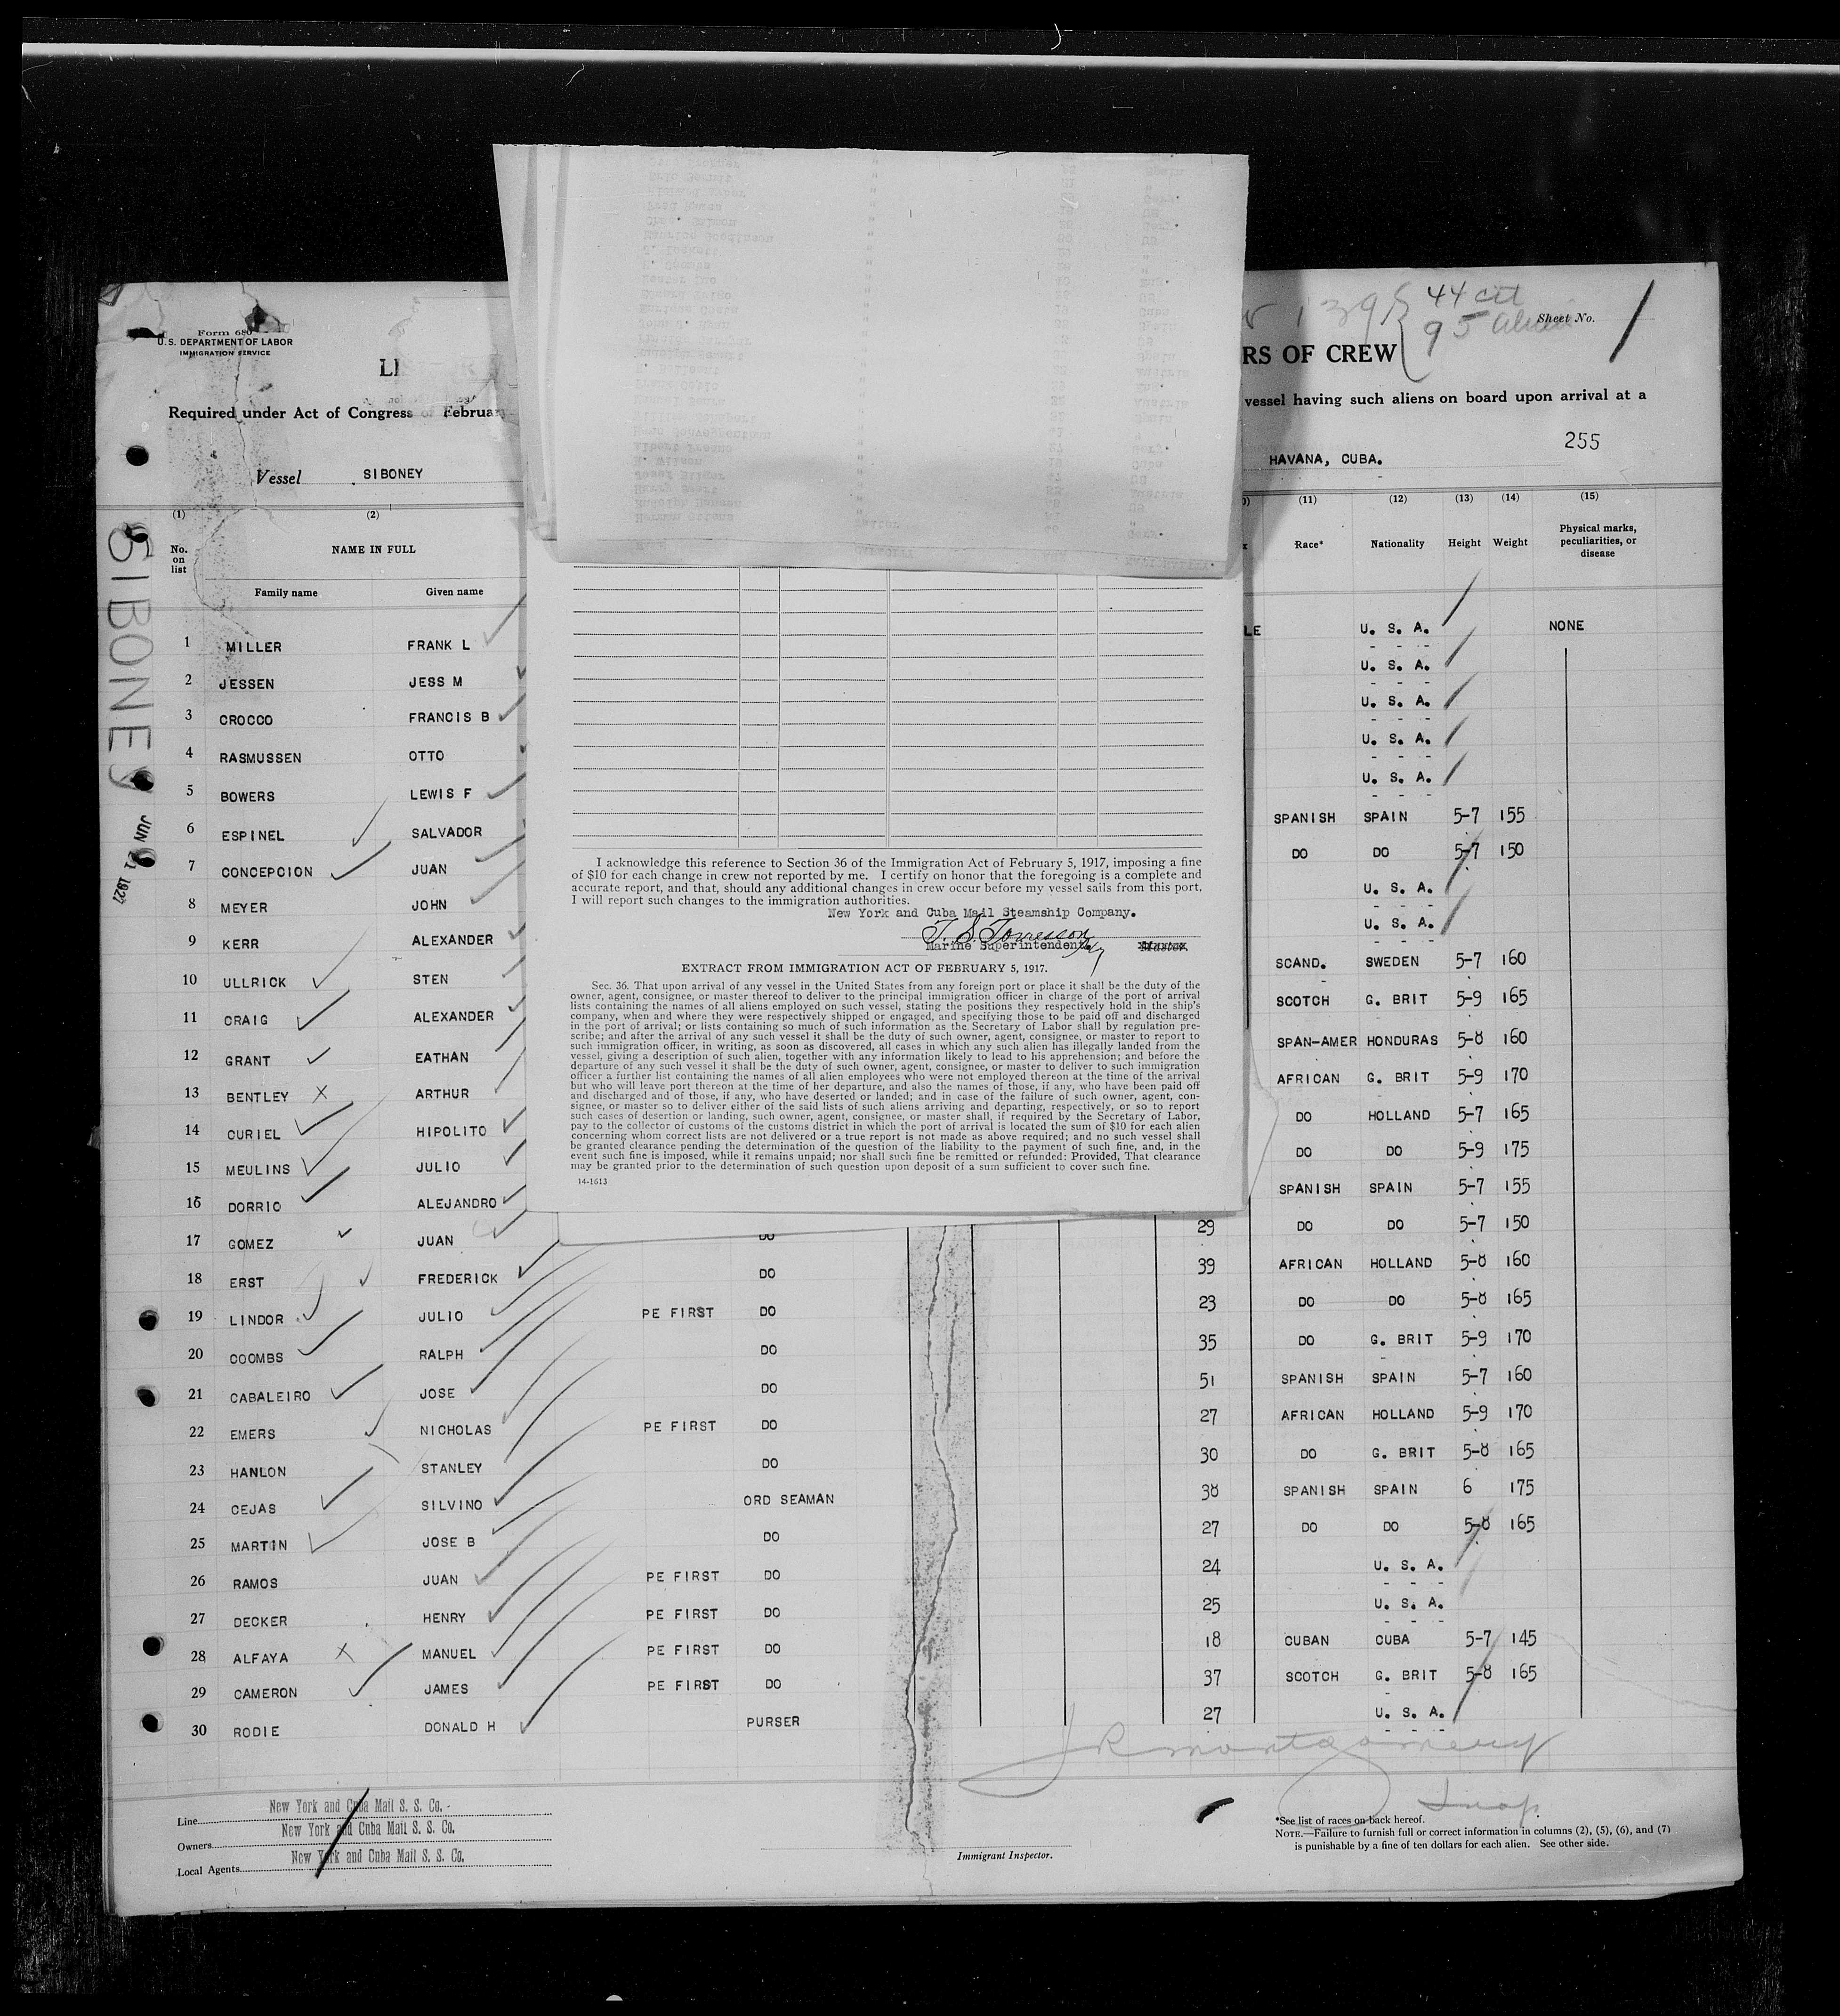 Form 680
U.S. DEPARTMENT OF LABOR
IMMIGRATION SERVICE
139 { 44 cit
95 Alien
Sheet No. 1
LI
RS OF CREW
Required under Act of Congress of Februar
vessel having such aliens on board upon arrival at a
255
Vessel SIBONEY
HAVANA, CUBA.
SIBONEY
JUN 21 1927
(1) (2) (11) (12) (13) (14) (15)
No. on list NAME IN FULL Race* Nationality Height Weight Physical marks, peculiarities, or disease
Family name Given name
1 MILLER FRANK L LE U. S. A. NONE
2 JESSEN JESS M U. S. A.
3 CROCCO FRANCIS B U. S. A.
4 RASMUSSEN OTTO U. S. A.
5 BOWERS LEWIS F U. S. A.
6 ESPINEL SALVADOR SPANISH SPAIN 5-7 155
7 CONCEPCION JUAN DO DO 5-7 150
8 MEYER JOHN U. S. A.
9 KERR ALEXANDER U. S. A.
10 ULLRICK STEN SCAND. SWEDEN 5-7 160
11 CRAIG ALEXANDER SCOTCH G. BRIT 5-9 165
12 GRANT EATHAN SPAN-AMER HONDURAS 5-8 160
13 BENTLEY X ARTHUR AFRICAN G. BRIT 5-9 170
14 CURIEL HIPOLITO DO HOLLAND 5-7 165
15 MEULINS JULIO DO DO 5-9 175
16 DORRIO ALEJANDRO SPANISH SPAIN 5-7 155
17 GOMEZ JUAN DO 29 DO DO 5-7 150
18 ERST FREDERICK DO 39 AFRICAN HOLLAND 5-8 160
19 LINDOR JULIO PE FIRST DO 23 DO DO 5-8 165
20 COOMBS RALPH DO 35 DO G. BRIT 5-9 170
21 CABALEIRO JOSE DO 51 SPANISH SPAIN 5-7 160
22 EMERS NICHOLAS PE FIRST DO 27 AFRICAN HOLLAND 5-9 170
23 HANLON STANLEY DO 30 DO G. BRIT 5-8 165
24 CEJAS SILVINO ORD SEAMAN 38 SPANISH SPAIN 6 175
25 MARTIN JOSE B DO 27 DO DO 5-8 165
26 RAMOS JUAN PE FIRST DO 24 U. S. A.
27 DECKER HENRY PE FIRST DO 25 U. S. A.
28 ALFAYA X MANUEL PE FIRST DO 18 CUBAN CUBA 5-7 145
29 CAMERON JAMES PE FIRST DO 37 SCOTCH G. BRIT 5-8 165
30 RODIE DONALD H PURSER 27 U. S. A.
I acknowledge this reference to Section 36 of the Immigration Act of February 5, 1917, imposing a fine
of $10 for each change in crew not reported by me. I certify on honor that the foregoing is a complete and
accurate report, and that, should any additional changes in crew occur before my vessel sails from this port,
I will report such changes to the immigration authorities.
New York and Cuba Mail Steamship Company.
Marine Superintendent. Master.
EXTRACT FROM IMMIGRATION ACT OF FEBRUARY 5, 1917.
Sec. 36. That upon arrival of any vessel in the United States from any foreign port or place it shall be the duty of the
owner, agent, consignee, or master thereof to deliver to the principal immigration officer in charge of the port of arrival
lists containing the names of all aliens employed on such vessel, stating the positions they respectively hold in the ship's
company, when and where they were respectively shipped or engaged, and specifying those to be paid off and discharged
in the port of arrival; or lists containing so much of such information as the Secretary of Labor shall by regulation pre-
scribe; and after the arrival of any such vessel it shall be the duty of such owner, agent, consignee, or master to report to
such immigration officer, in writing, as soon as discovered, all cases in which any such alien has illegally landed from the
vessel, giving a description of such alien, together with any information likely to lead to his apprehension; and before the
departure of any such vessel it shall be the duty of such owner, agent, consignee, or master to deliver to such immigration
officer a further list containing the names of all alien employees who were not employed thereon at the time of the arrival
but who will leave port thereon at the time of her departure, and also the names of those, if any, who have been paid off
and discharged and of those, if any, who have deserted or landed; and in case of the failure of such owner, agent, con-
signee, or master so to deliver either of the said lists of such aliens arriving and departing, respectively, or so to report
such cases of desertion or landing, such owner, agent, consignee, or master shall, if required by the Secretary of Labor,
pay to the collector of customs of the customs district in which the port of arrival is located the sum of $10 for each alien
concerning whom correct lists are not delivered or a true report is not made as above required; and no such vessel shall
be granted clearance pending the determination of the question of the liability to the payment of such fine, and, in the
event such fine is imposed, while it remains unpaid; nor shall such fine be remitted or refunded: Provided, That clearance
may be granted prior to the determination of such question upon deposit of a sum sufficient to cover such fine.
14-1613
J R Montgomery
Insp.
Line New York and Cuba Mail S. S. Co.
Owners New York and Cuba Mail S. S. Co.
Local Agents New York and Cuba Mail S. S. Co.
Immigrant Inspector.
*See list of races on back hereof.
NOTE.—Failure to furnish full or correct information in columns (2), (5), (6), and (7)
is punishable by a fine of ten dollars for each alien. See other side.